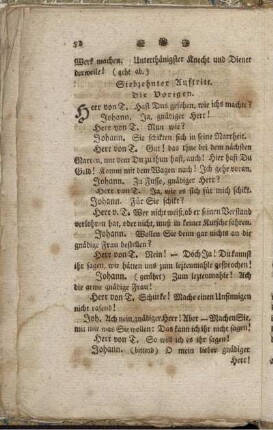 52
Werk machen. Unterthänigster Knecht und Diener
derweile! (geht ab.)
Siebzehnter Auftritt.
Die Vorigen.
Herr von T. Hast Dus gesehen, wie ichs machte?
Johann. Ja, gnädiger Herr!
Herr von T. Nun wie?
Johann. Sie schickten sich in seine Narrheit.
Herr von T. Gut! das thue bei dem nächsten
Narren, mit dem Du zu thun hast, auch! Hier hast Du
Geld! Komm mit dem Wagen nach! Ich gehe voran.
Johann. Zu Fusse, gnädiger Herr?
Herr von T. Ja, wie es sich für mich schikt.
Johann. Für Sie schikt?
Herr v. T. Wer nicht weiß, ob er seinen Verstand
verlohren hat, oder nicht, muß in keiner Kutsche fahren.
Johann. Wollen Sie denn gar nichts an die
gnädige Frau bestellen?
Herr von T. Nein! — Doch Ja! Du kannst
ihr sagen, wir hätten uns zum leztenmahle gesprochen!
Johann. (gerührt) Zum leztenmahle! Ach
die arme gnädige Frau!
Herr von T. Schurke! Mache einen Unsinnigen
nicht rasend!
Joh. Ach nein, gnädiger Herr! Aber — Machen Sie,
mit mir was Sie wollen: Das kann ich ihr nicht sagen!
Herr von T. So will ich es ihr sagen!
Johann. (bittend) O mein lieber gnädiger
Herr!